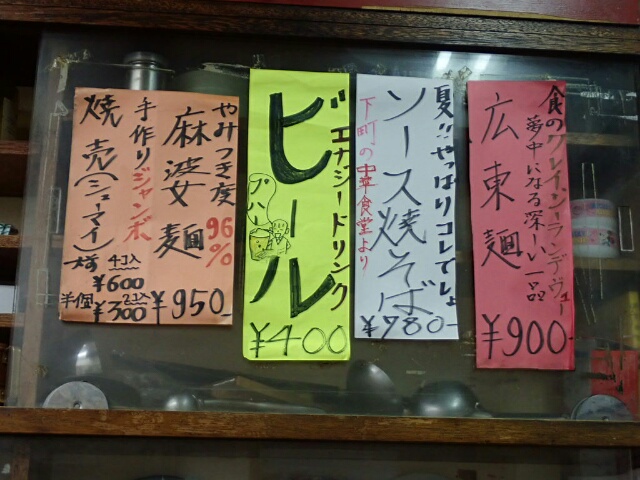 食のクレイジーランデヴュー
夢中になる深〜い一品
広東麺
¥900-
夏!!やっぱりコレでしょ
ソース焼そば
下町の中華食堂より
¥780-
エナジードリンク
ビール
プハー
¥400
やみつき度
96%
麻婆麺
¥950-
手作りジャンボ
焼売(シューマイ)
4コ入
¥600
半個
2コ入
¥300